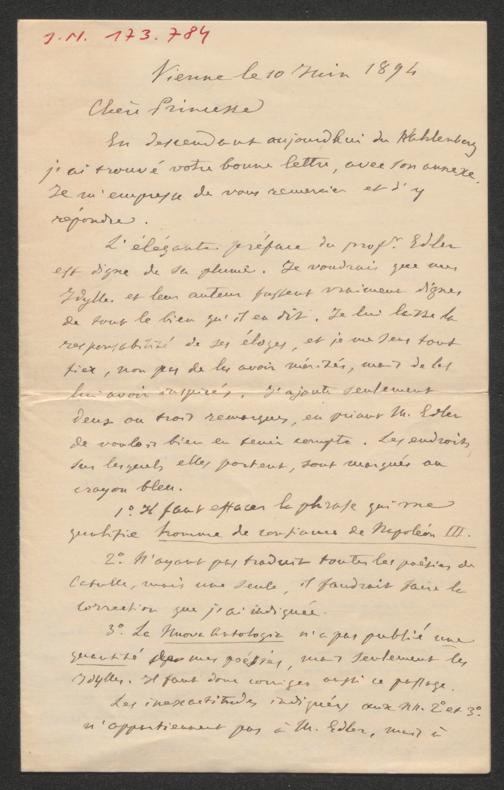 J.N. 173.784
Vienne le 10 Juin 1894
Chère Princesse
En descendant aujourdhui du Kahlenberg
j'ai trouvé votre bonne lettre, avec son annexe.
Je m'empresse de vous remercier et d'y
répondre.
L'élégante préface du profr. Edler
est digne de sa plume. Je voudrais que mes
Idylles et leur auteur fussent vraiment dignes
de tout le bien qu'il en dit. Je lui laisse la
responsabilité de ses éloges, et je me sens tout
fier, non pas de les avoir mérités, mais de les
lui avoir inspirés. J'ajoute seulement
deux ou trois remarques, en priant M. Edler
de vouloir bien en tenir compte. Les endroits,
sur lesquels elles portent, sont marqués au
crayon bleu.
1.° Il faut effacer la phrase qui me
qualifie homme de confiance de Napoléon III.
2.° N'ayant pas traduit toutes les poésies de
Catulle, mais une seule, il faudrait faire la
correction que j'ai indiquée.
3.° La Nuova Antologia n'a pas publié une
quantité de mes poésies, mais seulement les
Idylles. Il faut donc corriger aussi ce passage.
Les inexactitudes indiquées aux NN. 2° et 3°
n'appartiennent pas à M. Edler, mais à